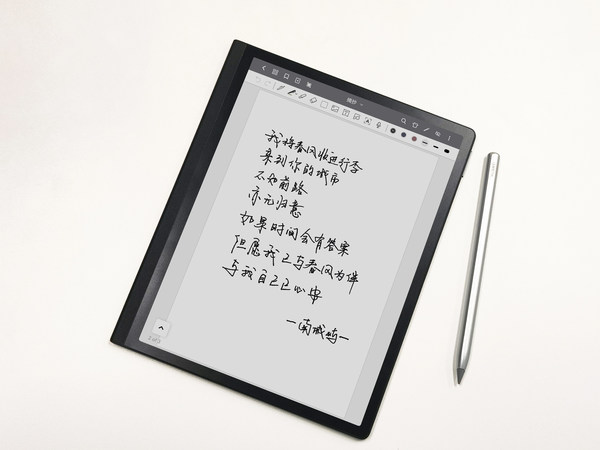 我将春风收进行李
来到你的城市
不知前路
亦无归意
如果时间会有答案
但愿我已与春风为伴
与我自己已心安
—南城